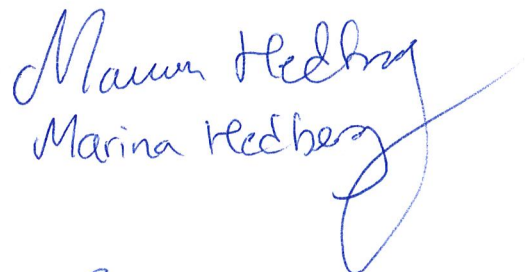 Marina Hedberg
Marina Hedberg